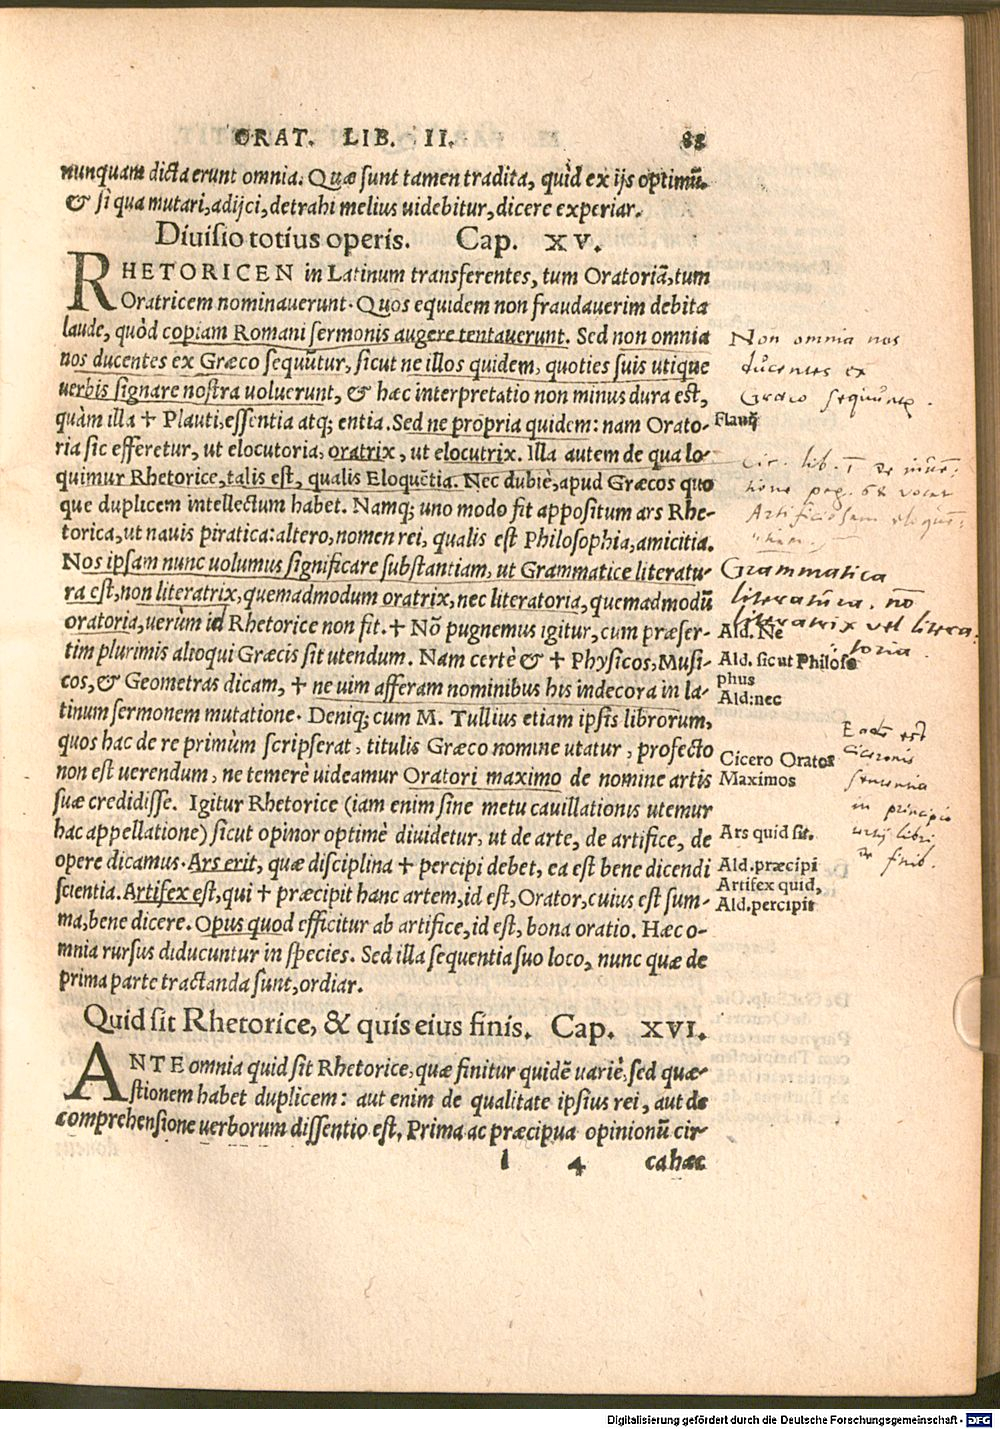 ORAT. LIB. II. 88
nunquam dicta erunt omnia. Quæ sunt tamen tradita, quid ex ijs optimũ.
& si qua mutari, adijci, detrahi melius uidebitur, dicere experiar.
Diuisio totius operis. Cap. XV.
RHETORICEN in Latinum transferentes, tum Oratoriã, tum
Oratricem nominauerunt. Quos equidem non fraudauerim debita
laude, quòd copiam Romani sermonis augere tentauerunt. Sed non omnia
nos ducentes ex Græco sequũtur, sicut ne illos quidem, quoties suis utique
uerbis signare nostra uoluerunt, & hæc interpretatio non minus dura est,
quàm illa † Plauti, essentia atq; entia. Sed ne propria quidem: nam Orato-
ria sic efferetur, ut elocutoria, oratrix, ut elocutrix. Illa autem de qua lo-
quimur Rhetorice, talis est, qualis Eloquẽtia. Nec dubiè, apud Græcos quo
que duplicem intellectum habet. Namq; uno modo fit appositum ars Rhe-
torica, ut nauis piratica: altero, nomen rei, qualis est Philosophia, amicitia.
Nos ipsam nunc uolumus significare substantiam, ut Grammatice literatu-
ra est, non literatrix, quemadmodum oratrix, nec literatoria, quemadmodũ
oratoria, uerùm id Rhetorice non fit. † Nõ pugnemus igitur, cum præser-
tim plurimis alioqui Græcis sit utendum. Nam certè & † Physicos, Musi-
cos, & Geometras dicam, † ne uim afferam nominibus his indecora in la-
tinum sermonem mutatione. Deniq; cum M. Tullius etiam ipsis librorum,
quos hac de re primùm scripserat, titulis Græco nomine utatur, profecto
non est uerendum, ne temerè uideamur Oratori maximo de nomine artis
suæ credidisse. Igitur Rhetorice (iam enim sine metu cauillationis utemur
hac appellatione) sicut opinor optimè diuidetur, ut de arte, de artifice, de
opere dicamus. Ars erit, quæ disciplina † percipi debet, ea est bene dicendi
scientia. Artifex est, qui † præcipit hanc artem, id est, Orator, cuius est sum-
ma, bene dicere. Opus quod efficitur ab artifice, id est, bona oratio. Hæc o-
mnia rursus diducuntur in species. Sed illa sequentia suo loco, nunc quæ de
prima parte tractanda sunt, ordiar.
Quid sit Rhetorice, & quis eius finis. Cap. XVI.
ANTE omnia quid sit Rhetorice, quæ finitur quidẽ variè, sed quæ-
stionem habet duplicem: aut enim de qualitate ipsius rei, aut de
comprehensione uerborum dissentio est, Prima ac præcipua opinionũ cir-
l 4 ca hæc
Non omnia nos
ducentes ex
Græco sequũtur.
Flauij
Cic. lib. 1 de inuẽ-
tione pag. 68 vocat
Artificiosam eloquẽ-
tiam.
Grammatica
literatura. nõ
literatrix vel litera-
toria.
Ald. Ne
Ald. sicut Philoso
phus
Ald: nec
Cicero Orator
Maximos
est
Ciceronis
sententia
in principio
libri
de finib.
Ars quid sit.
Ald. præcipi
Artifex quid,
Ald. percipit
Digitalisierung gefördert durch die Deutsche Forschungsgemeinschaft - DFG